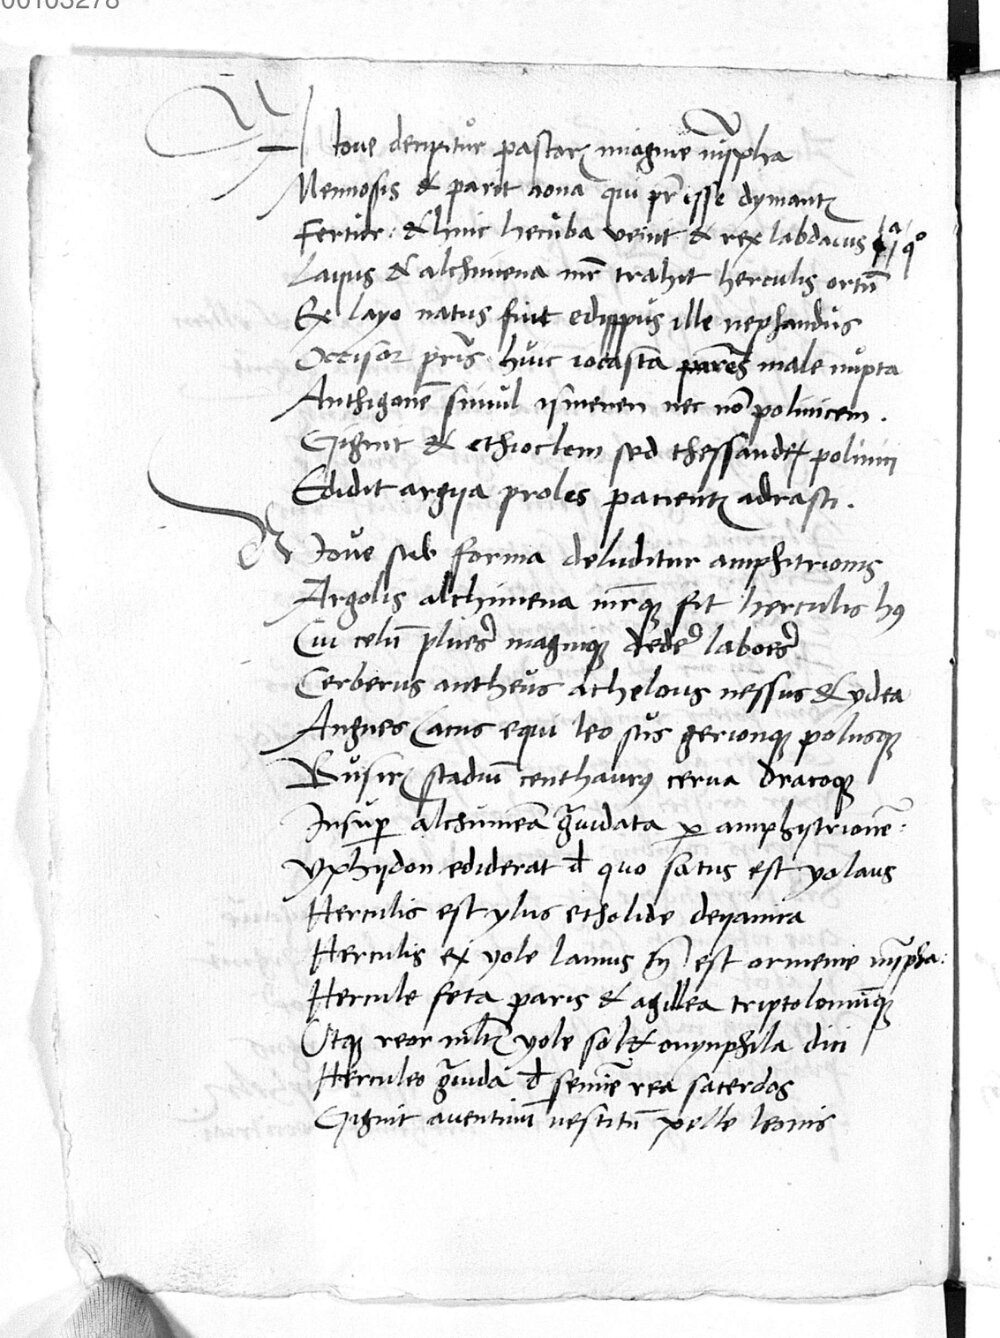 00103278
A Ioue decipitur pastoris imagine nympha
Mennosis & parit aona qui pr̄ isse dymantis
Fertur: & hinc hecuba venit & rex labdacus
Layus & alchimena mr̄ trahit herculis ortū
Ex layo natus fuit edippus ille nephandus
Occisor pr̄is: huic iocasta parēs male nupta
Anthigonē simul ismenen nec nō polinicem.
Gignit & ethioclem sed thessandrū polinici
Edidit argiia proles parientis adrasti.
A Ioue sub forma deluditur amphitrionis
Argolis alchimena mr̄q3 fit herculis hui9
Cui celū plures magniq3 dedere labores
Cerberus antheus athelous nessus & ydra
Angues Cacus equi leo sus gerionq3 polusq3
Busiris stadiū centhaurus cerua dracoq3
Insuper alchimena grauidata per amphytrionē:
yphidon ediderat de quo satus est yolaus
Herculis est ylus etholide deyanira
Herculis ex yole lamus est ormenie nympha:
Hercule feta paris & agillea triptolomūq3
Utq3 reor yole solet onynphila dici
Herculeo grauida de semine rea sacerdos
Gignit auentinū uestitū pelle leonis